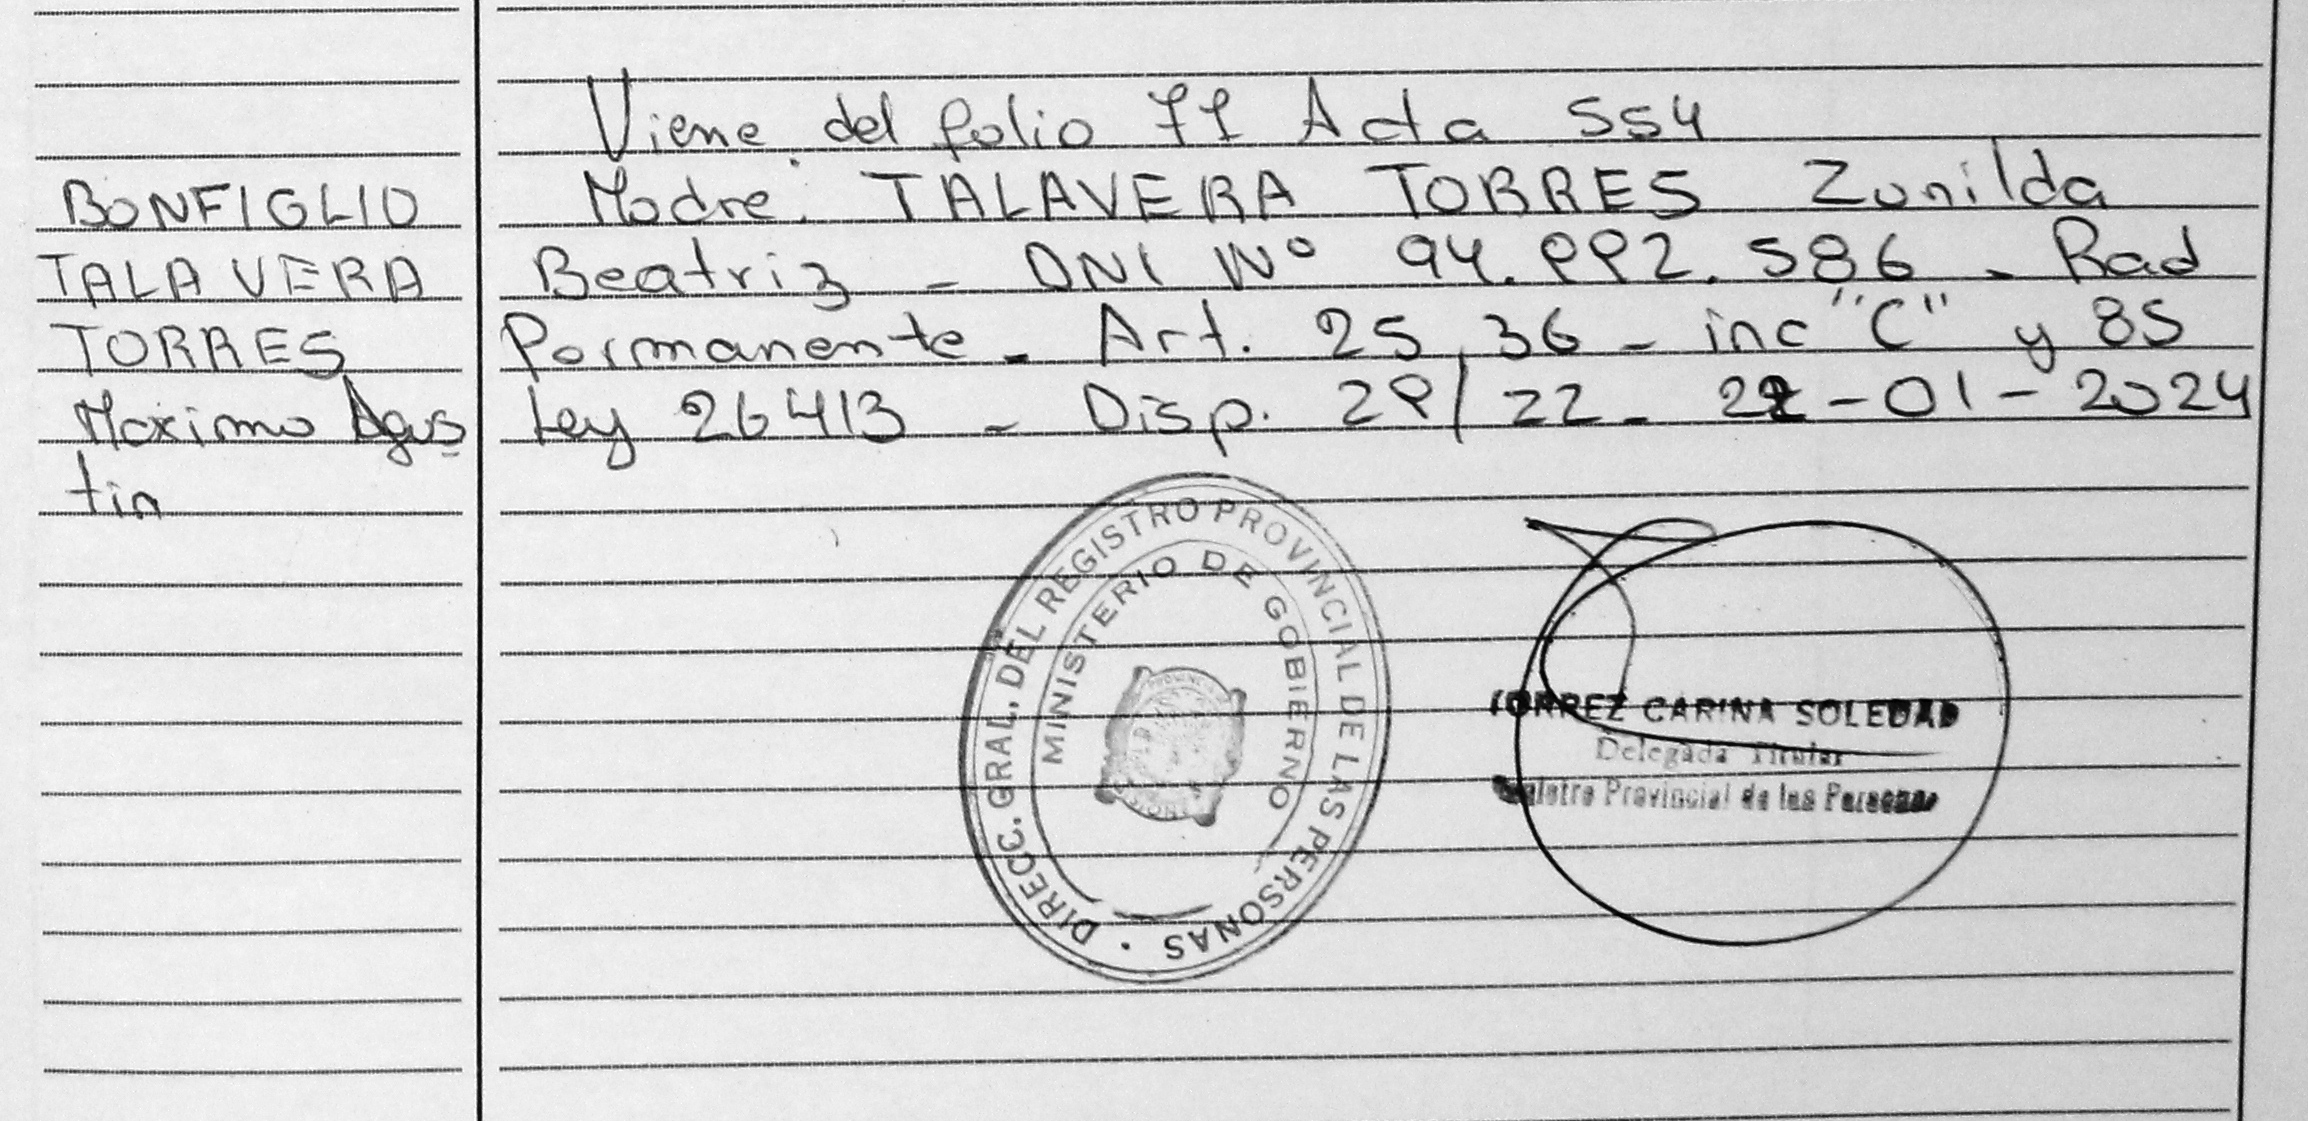 Viene del folio 71 Acta 554
BONFIGLIO
TALAVERA
TORRES
Maximo Agus
tin
Madre: TALAVERA TORRES Zunilda
Beatriz - DNI Nº 94.992.586 - Rad
Permanente - Art. 25, 36 - inc "C" y 85
Ley 26413 - Disp. 29/22 - -01-2024
DIRECC. GRAL. DEL REGISTRO PROVINCIAL DE LAS PERSONAS ·
MINISTERIO DE GOBIERNO
TORREZ CARINA SOLEDAD
Delegada Titular
Registro Provincial de las Personas